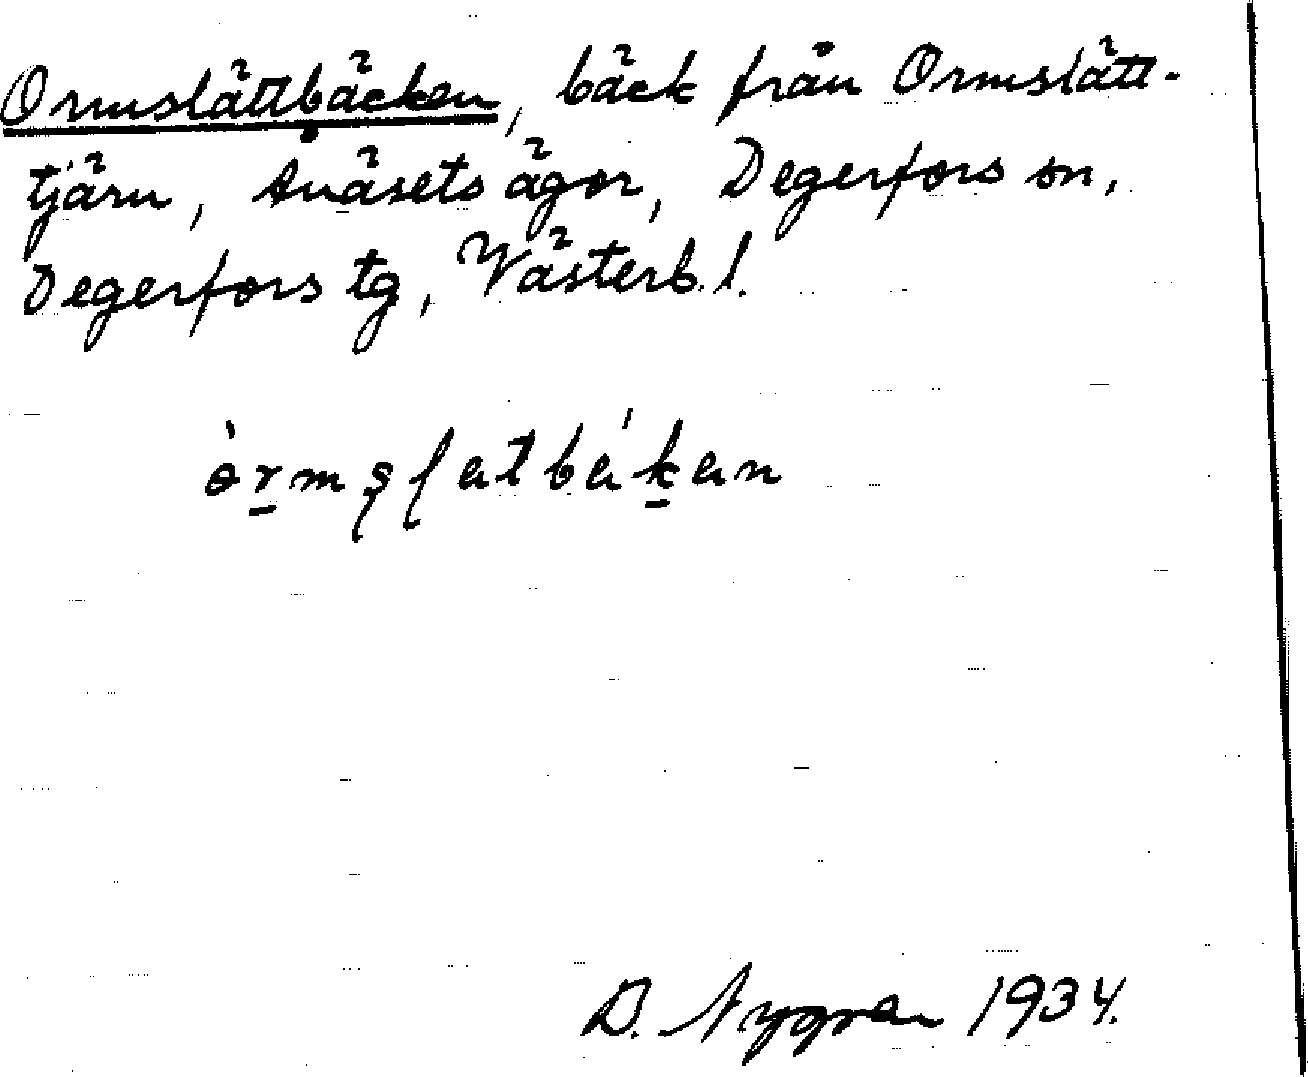 Ormslättbäcken, bäck från Ormslätt-
tjärn, Avåsets ägor, Degerfors sn,
Degerfors tg, Västerb. l.
D. Nygran 1934.